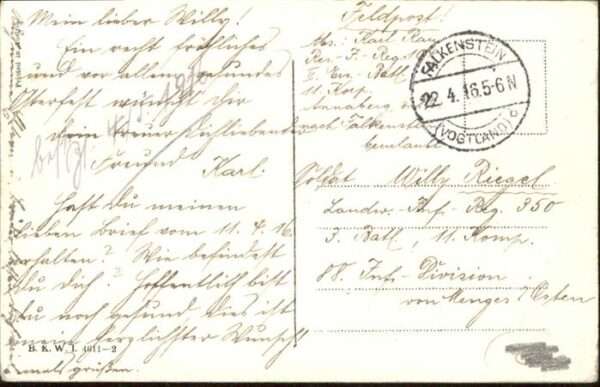 Mein lieber Willy!
Ein recht fröhliches
und vor allem gesundes
Osterfest wünscht dir
dein treuer
Freund Karl.
Hast du meinen
lieben Brief vom 11. 4. 16
erhalten? Wie befindest
du dich? Hoffentlich bist
du noch gesund, dies ist
mein herzlichster Wunsch!
B. K. W. I. 4611-2
Feldpost!
Abs.: Karl
Res.-I.-Reg.
II. Ers.-Batl.
11. Korp.
Annaberg
nach Falkenstein
FALKENSTEIN
22. 4. 16. 5-6 N
(VOGTLAND) c
Soldat Willy Riegel
Landw.-Inf.-Reg. 350
3. Batl, 11. Komp.
88. Inf. Division
von Menges / Osten
Printed in